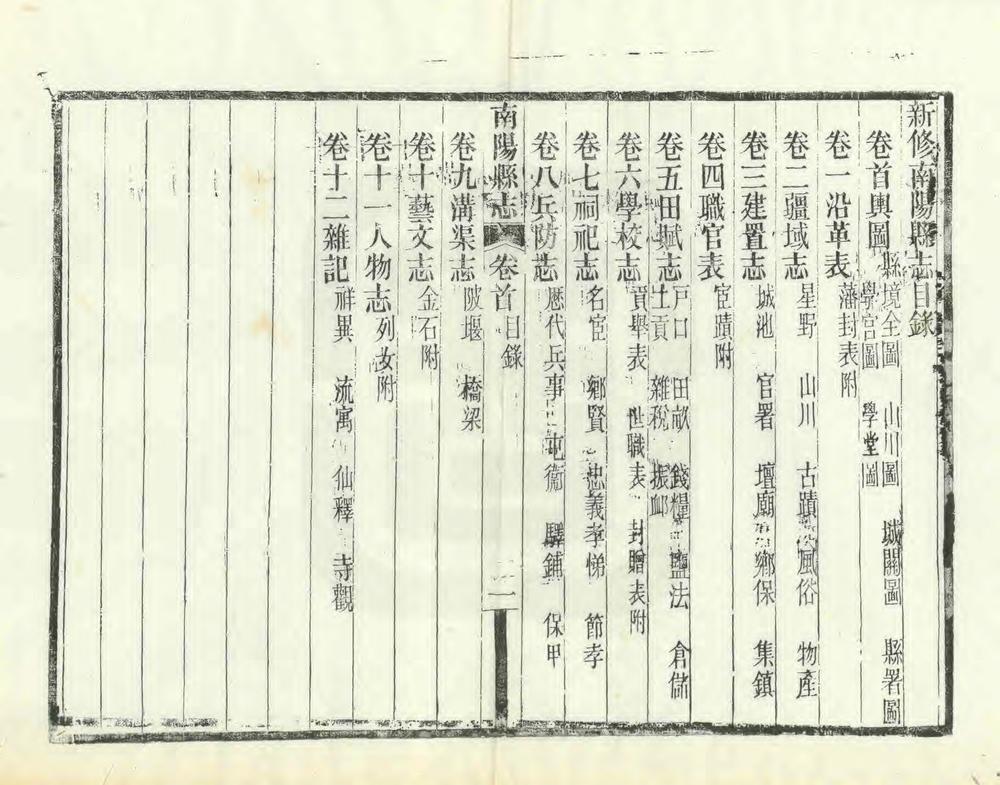 新修南陽縣志目錄
卷首輿圖 縣境全圖 山川圖 城關圖 縣署圖
學宮圖 學堂圖
卷一沿革表 藩封表附
卷二疆域志 星野 山川 古蹟 風俗 物產
卷三建置志 城池 官署 壇廟 鄉保 集鎮
卷四職官表 宦蹟附
卷五田賦志 戸口 田畝 錢糧 鹽法 倉儲
土貢 雜稅 振卹
卷六學校志 貢舉表 世職表 封贈表附
卷七祠祀志 名宦 鄉賢 忠義孝悌 節孝
卷八兵防志 歷代兵事 屯衞 驛鋪 保甲
南陽縣志 卷首 目錄 二
卷九溝渠志 陂堰 橋梁
卷十藝文志 金石附
卷十一人物志 列女附
卷十二雜記 祥異 流寓 仙釋 寺觀